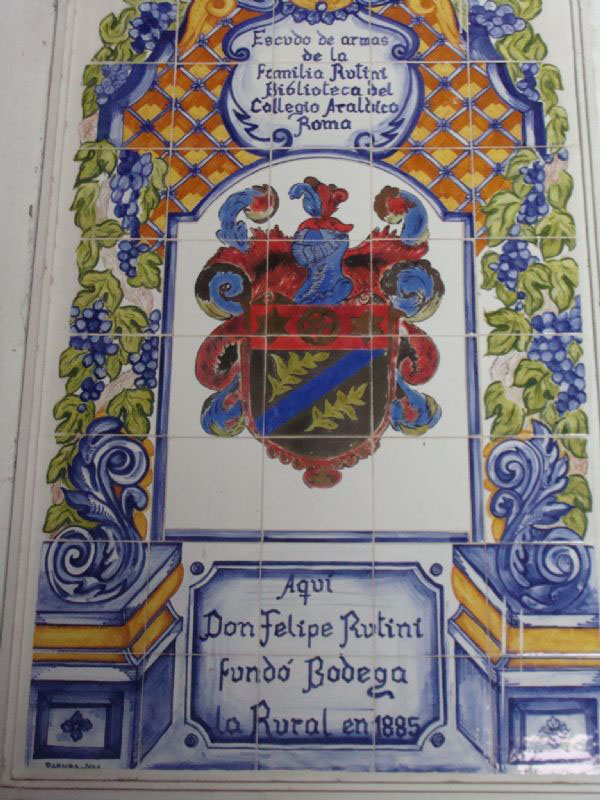 Escudo de armas
de la
Familia Rutini
Biblioteca del
Collegio Araldico
Roma
Aquí
Don Felipe Rutini
fundó Bodega
la Rural en 1885